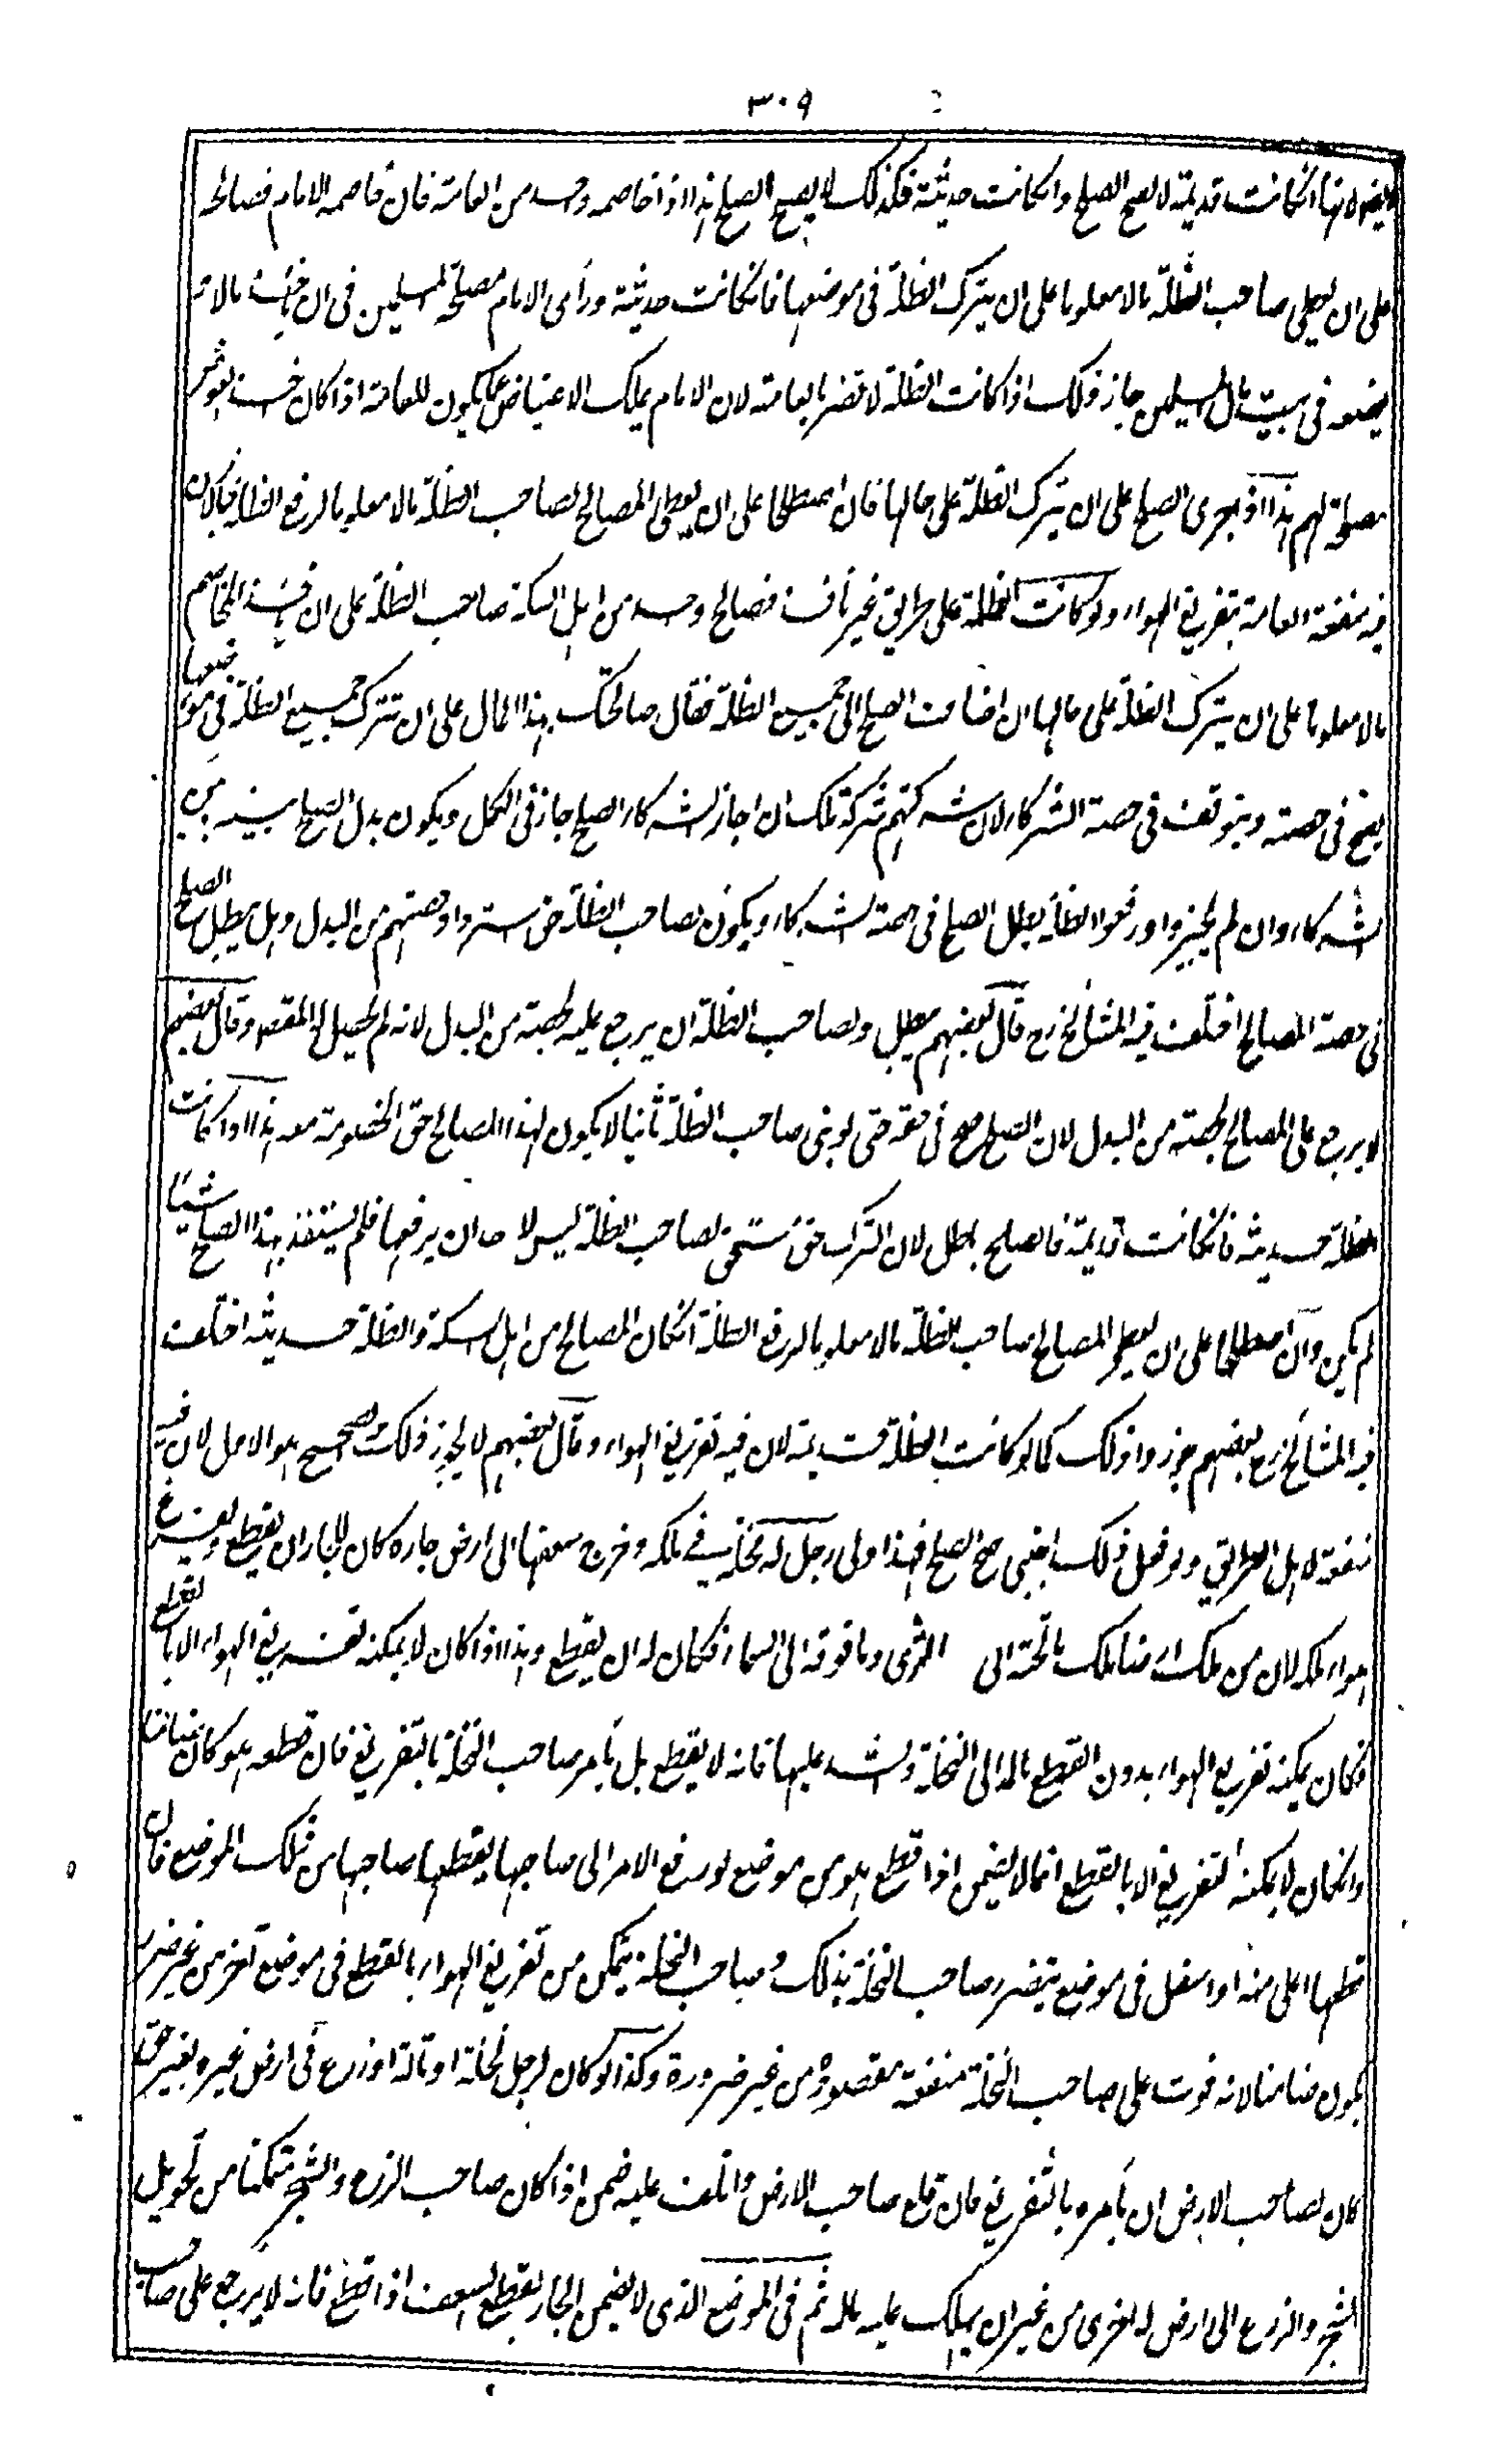 ٣٠٩
لانها انكانت قديمة لا يصح الصلح وانكانت حديثة فكذلك لا يصح الصلح هذا اذا خاصمه واحد من العامة فان خاصمه الامام فصالحه
على ان يعطى صاحب الظلة مالا معلوما على ان يترك الظلة فى موضعها فانكانت حديثة ورأى الامام مصلحة المسلمين فى ان ياخذ مالا
فيضعه فى بيت مال المسلمين جاز ذلك اذا كانت الظلة لا تضر بالعامة لان الامام يملك الاعتياض عما يكون للعامة اذا كان
مصلحة لهم هذا اذا جرى الصلح على ان يترك الظلة على حالها فان اصطلحا على ان يعطى المصالح لصاحب الظلة مالا معلوما لرفع الظلة جاز لان
فيه منفعة العامة بتفريغ الهواء ولو كانت الظلة على طريق غير نافذ فصالح واحد من اهل السكة صاحب الظلة على ان ياخذ المخاصم
مالا معلوما على ان يترك الظلة على حالها ان اضافت الصلح الى جميع الظلة فقال صالحتك بهذا المال على ان تترك جميع الظلة فى موضعها
يصح فى حصته ويتوقف فى حصة الشركاء لان شركتهم شركة ملك ان اجاز الشركاء الصلح جاز فى الكل ويكون بدل الصلح بينه وبين
الشركاء وان لم يجيزوا ورفعوا الظلة بطل الصلح فى حصة الشركاء ويكون لصاحب الظلة حق استرداد حصتهم من البدل وهل يبطل الصلح
فى حصة المصالح اختلف فيه المشائخ رح قال بعضهم يبطل ولصاحب الظلة ان يرجع عليه بحصته من البدل لانه لم يحصل له المقصود وقال بعضهم
لا يرجع على المصالح بحصته من البدل لان الصلح صح فى حقه حتى لو بنى صاحب الظلة ثانيا لا يكون لهذا المصالح حق الخصومة معه هذا اذا كانت
الظلة حديثة فانكانت قديمة فالصلح باطل لان الترك حق مستحق لصاحب الظلة ليس لاحد ان يرفعها فلم يستفد بهذا الصلح شيئا
لم يكن وان اصطلحا على ان يعطى المصالح صاحب الظلة مالا معلوما لرفع الظلة انكان المصالح من اهل السكة والظلة حديثة اختلف
فيه المشائخ رح بعضهم جوزوا ذلك كما لو كانت الظلة قديمة لان فيه تفريغ الهواء وقال بعضهم لا يجوز ذلك والصحيح هو الاول لان فيه
منفعة لاهل الطريق ولو فعل ذلك اجنبى صح الصلح فهذا اولى رجل له نخلة فى ملكه وخرج سعفها الى ارض جاره كان للجار ان يقطع ويفرغ
هواء ملكه لان من ملك ارضا ملك ما تحته الى الثرى وما فوقه الى السماء فكان له ان يقطع وهذا اذا كان لا يمكنه تفريغ الهواء الا بالقطع
فكان يمكنه تفريغ الهواء بدون القطع بالمد الى النخلة والشد عليها فانه لا يقطع بل يأمر صاحب النخلة بالتفريغ فان قطعه هو كان ضامنا
وانكان لا يمكنه التفريغ الا بالقطع انما لا يضمن اذا قطع هو من موضع لو رفع الامر الى صاحبها يقطعها صاحبها من ذلك الموضع فان
قطعها اعلى منه او اسفل فى موضع يتضرر صاحب النخلة بذلك وصاحب النخلة يتمكن من تفريغ الهواء بالقطع فى موضع آخر من غير ضرر
يكون ضامنا لانه فوت على صاحب النخلة منفعة مقصودة من غير ضرورة وكذا لو كان لرجل نخلة او تالة او زرع فى ارض غيره بغير حق
كان لصاحب الارض ان يأمره بالتفريغ فان قلع صاحب الارض واتلف عليه ضمن اذا كان صاحب الزرع والشجر متمكنا من تحويل
الشجر والزرع الى ارض له اخرى من غير ان يهلك عليه ماله ثم فى الموضع الذى لا يضمن الجار بقطع السعف اذا قطع فانه لا يرجع على صاحب